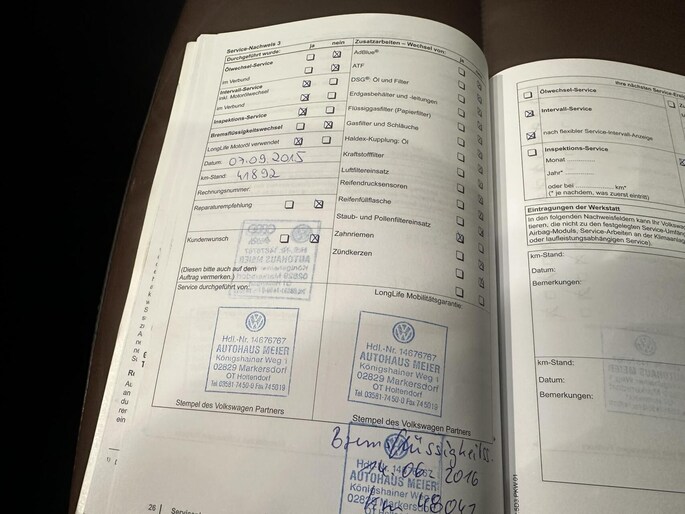 Service-Nachweis 3
ja
nein
Durchgeführt wurde:
Ölwechsel-Service
im Verbund
Intervall-Service
inkl. Motorölwechsel
im Verbund
Inspektions-Service
Bremsflüssigkeitswechsel
LongLife Motoröl verwendet
Datum: 07.09.2015
km-Stand: 41892
Rechnungsnummer:
Reparaturempfehlung
Kundenwunsch
(Diesen bitte auch auf dem
Auftrag vermerken.)
Service durchgeführt von:
Hdl.-Nr. 14676767
AUTOHAUS MEIER
Königshainer Weg 1
02829 Markersdorf
OT Holtendorf
Tel. 03581-74 50-0 Fax 74 50 19
Stempel des Volkswagen Partners
26
Zusatzarbeiten – Wechsel von:
ja
AdBlue®
ATF
DSG®: Öl und Filter
Erdgasbehälter und -leitungen
Flüssiggasfilter (Papierfilter)
Gasfilter und Schläuche
Haldex-Kupplung: Öl
Kraftstofffilter
Luftfiltereinsatz
Reifendrucksensoren
Reifenfüllflasche
Staub- und Pollenfiltereinsatz
Zahnriemen
Zündkerzen
LongLife Mobilitätsgarantie
Hdl.-Nr. 14676767
AUTOHAUS MEIER
Königshainer Weg 1
02829 Markersdorf
OT Holtendorf
Tel. 03581-74 50-0 Fax 74 50 19
Stempel des Volkswagen Partners
Bremsflüssigkeits
14.06.2016
AUTOHAUS MEIER
Königshainer Weg
Ihre nächsten Service-
Ölwechsel-Service
Intervall-Service
nach flexibler Service-Intervall-Anzeige
Inspektions-Service
Monat
Jahr*
oder bei km*
(* je nachdem, was zuerst eintrifft)
Eintragungen der Werkstatt
In den folgenden Nachweisfeldern kann Ihr Volkswa
zeiten, die nicht zu den festgelegten Service-Umfän
Airbag-Moduls, Service-Arbeiten an der Klimaanlag
oder laufleistungsabhängigen Service).
km-Stand:
Datum:
Bemerkungen:
km-Stand:
Datum:
Bemerkungen: